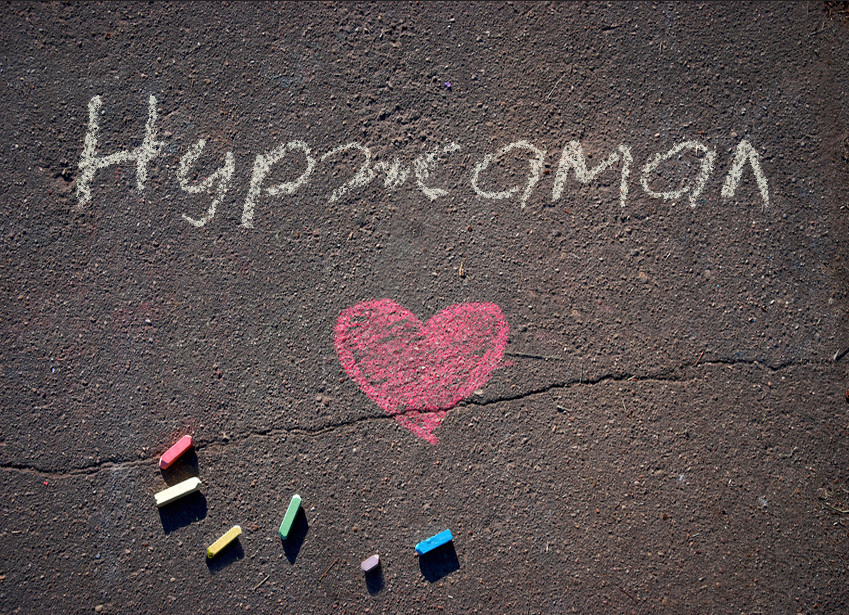 Нуржамал